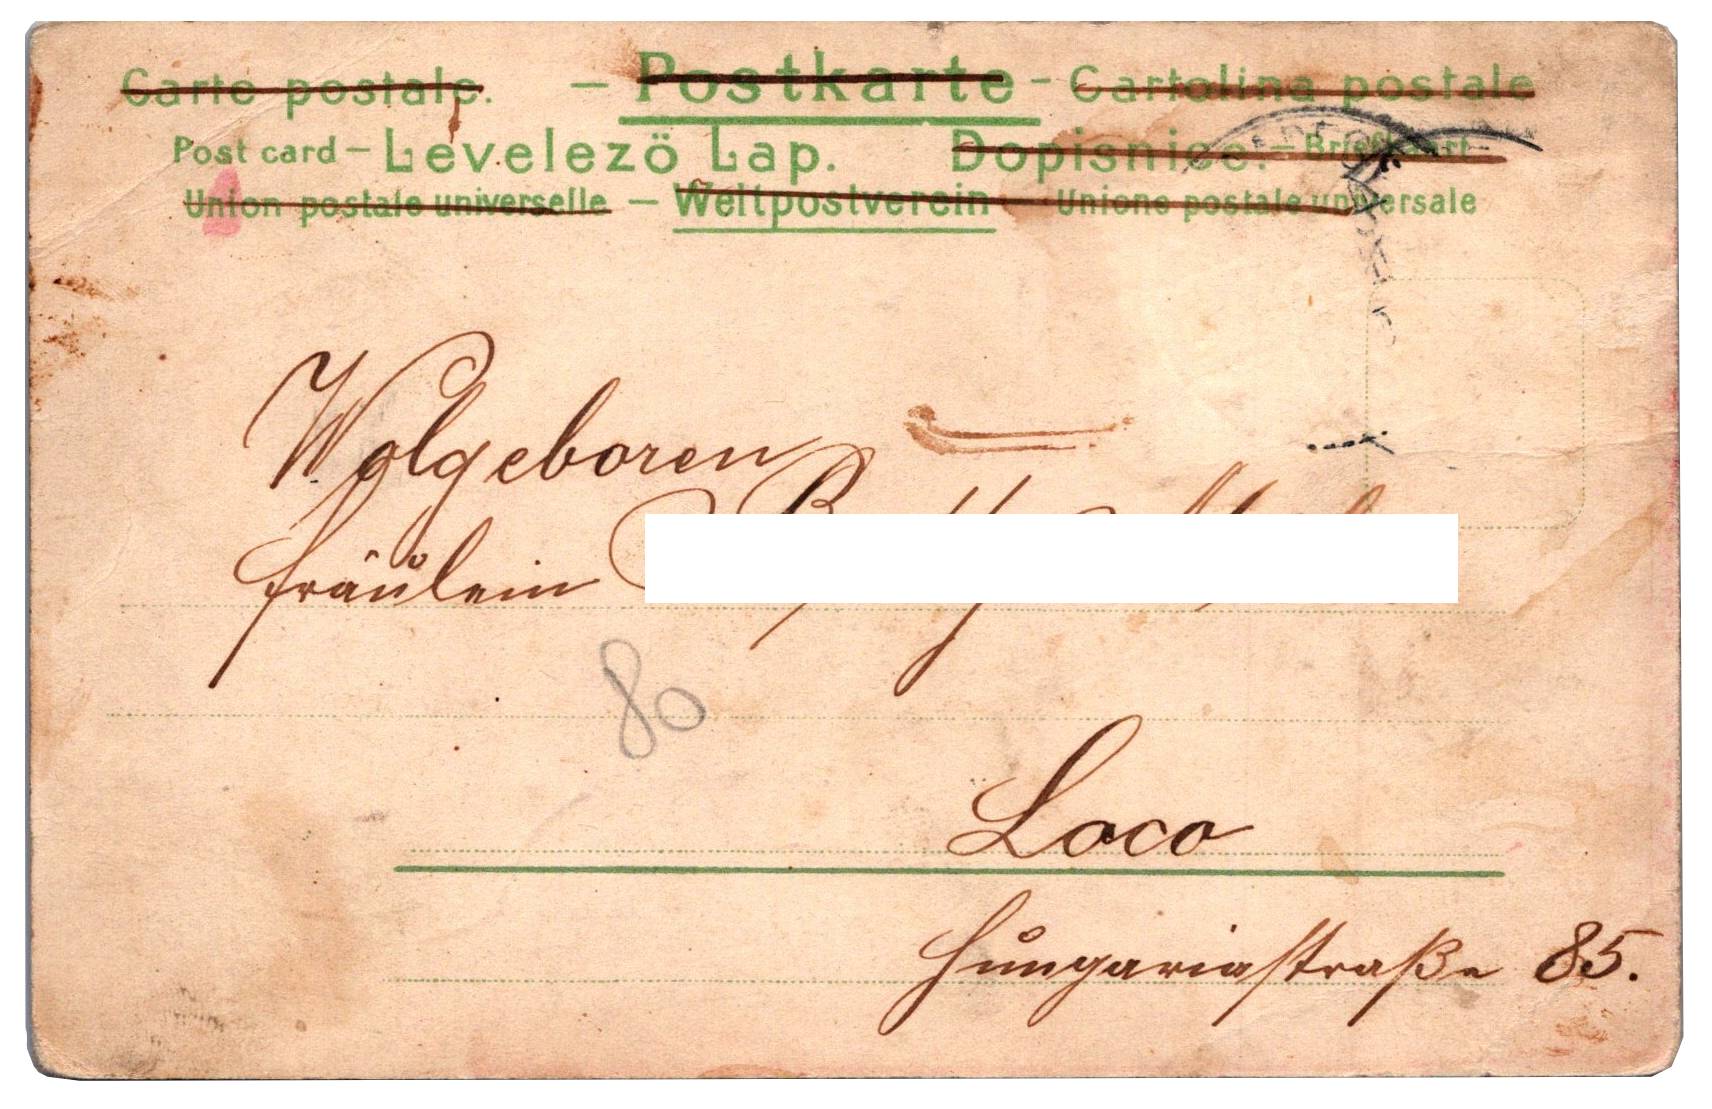 Carte postale. — Postkarte - Cartolina postale
Post card — Levelezö Lap. Dopisnice. — Briefkaart
Union postale universelle — Weltpostverein — Unione postale universale
Wolgeboren
fräulein
80
Loco
Hungariastraße 85.